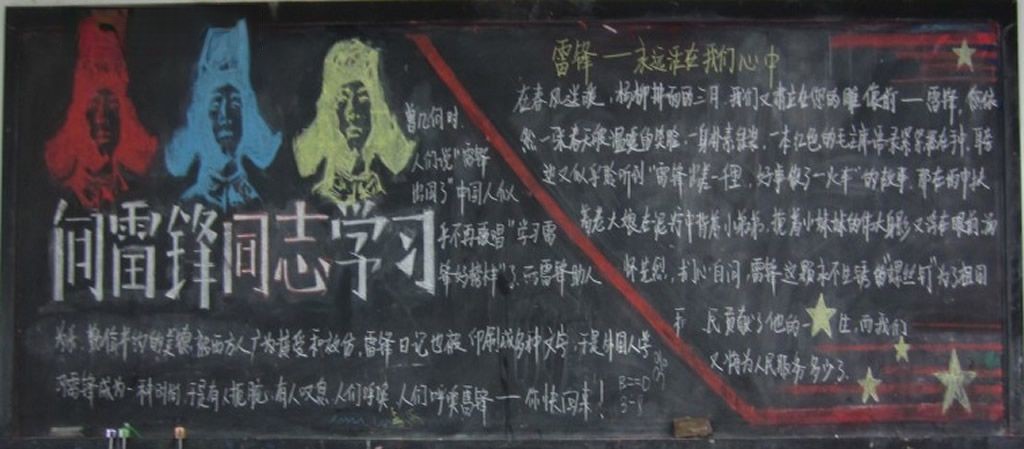 向雷锋同志学习
曾几何时,
人们说"雷锋
出国了"中国人似
乎不再歌唱"学习雷
锋好榜样"了,而雷锋助人
为乐,的美德被西方人广为接受和效仿,雷锋日记也被印刷成多种文字,于是外国人学
习雷锋成为一种时尚,于是有人有人叹息,人们呼唤,人们呼唤雷锋——你快回来!
雷锋——永远活在我们心中
在春风送暖,杨柳拂面的三月,我们又肃立在您的雕像前——雷锋,您依
然一张春天般温暖的笑脸,一身朴素着装,一本红色的毛主席语录紧紧握在手中,耳旁
边又似乎聆听到"雷锋出差一里,好事做了一火车"的故事,那在雨中扶
着老大娘在泥泞中背着小抱着小妹妹的伟大身影又浮在眼前,油
然生起,扪心自问,雷锋这颗永不生锈的"螺丝钉"为了祖国
和人民贡献了他的一生,而我们
又将为人民服务多少了